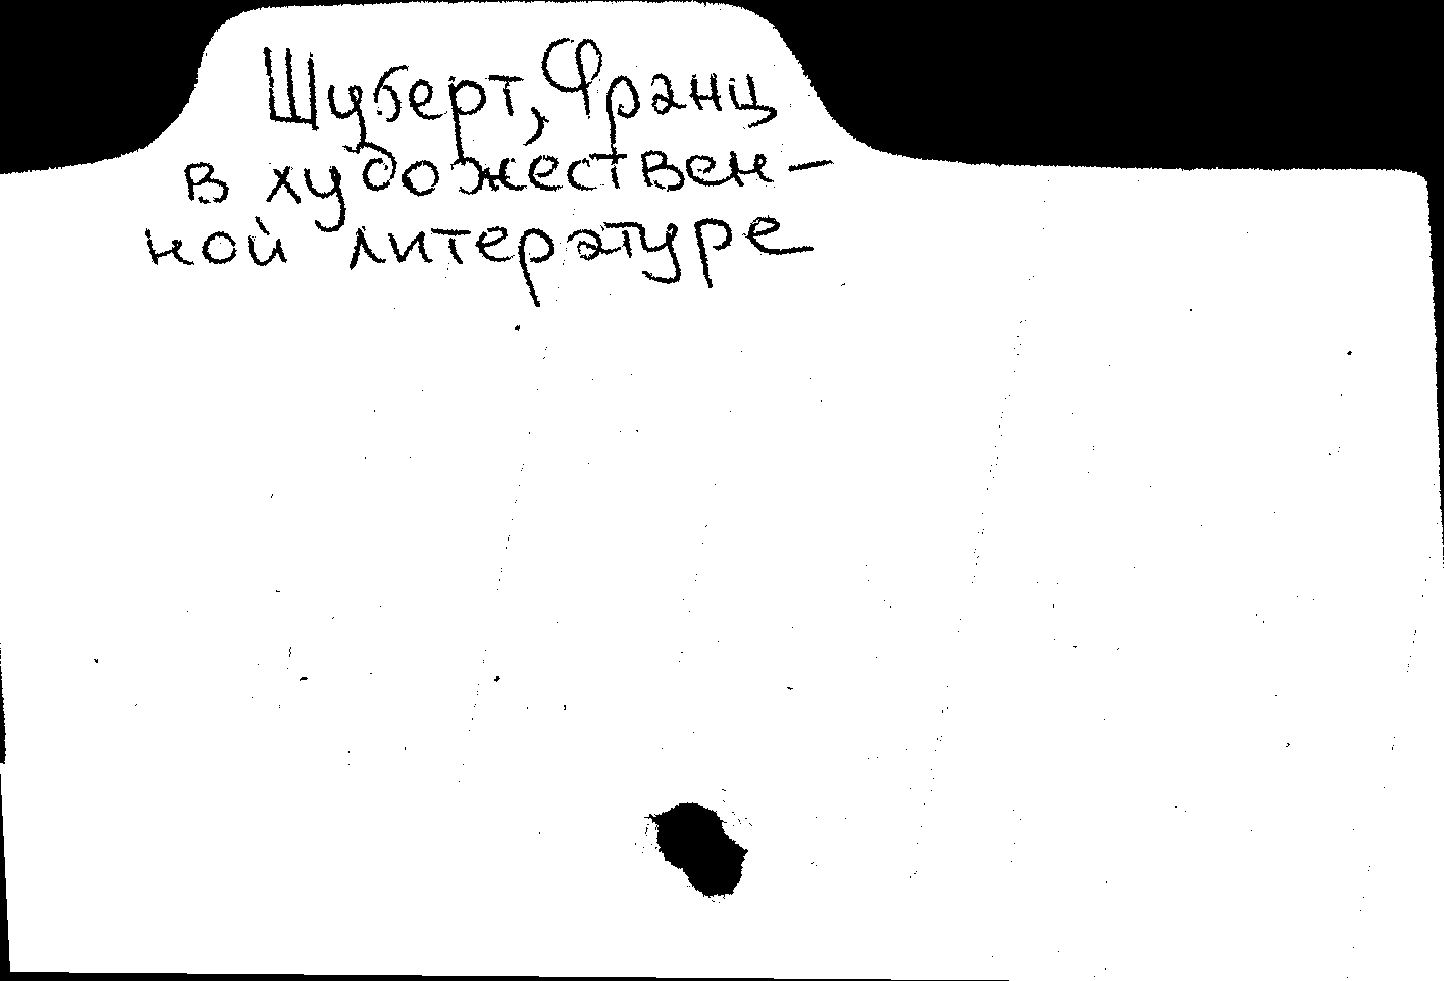 Шуберт, Франц
в художествен-
ной литературе